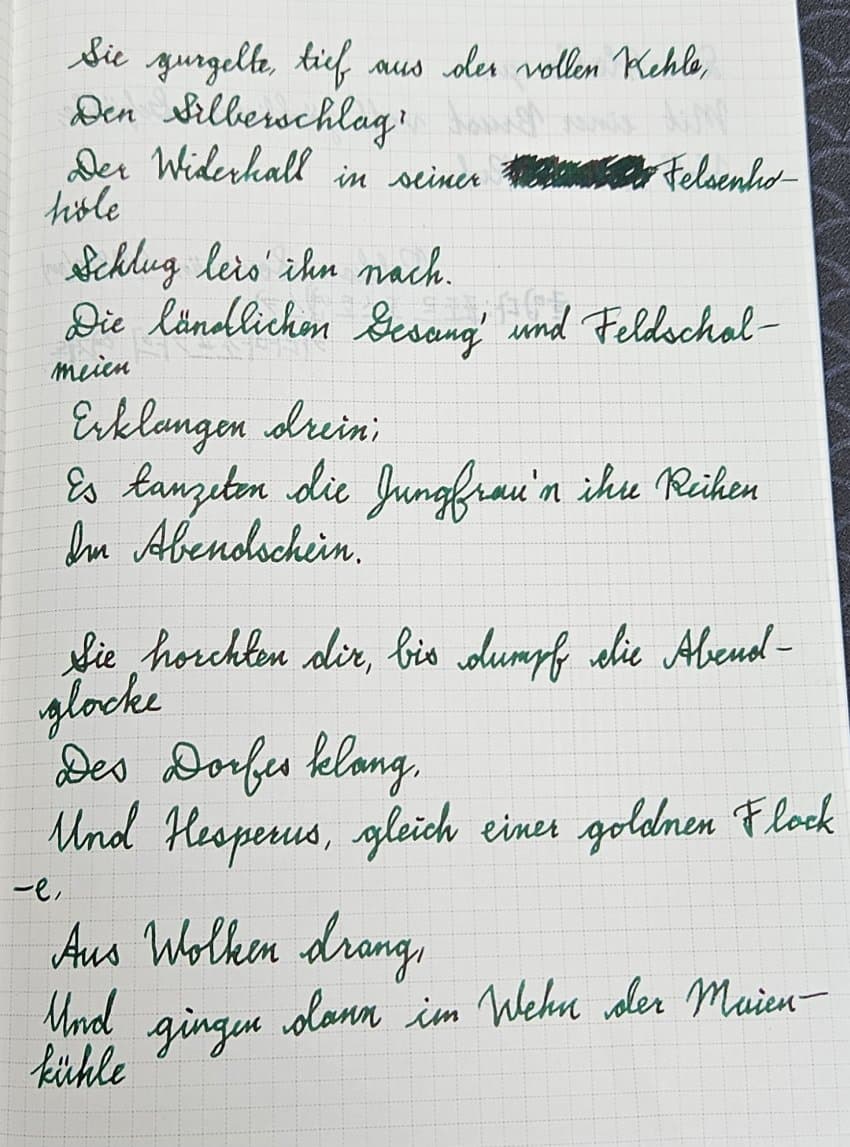 Sie gurgelte, tief aus der vollen Kehle,
Den Silberschlag:
Der Widerhall in seiner Felsenho-
höle
Schlug leis' ihn nach.
Die ländlichen Gesang' und Feldschal-
meien
Erklangen drein;
Es tanzeten die Jungfrau'n ihre Reihen
Im Abendschein.
Sie horchten dir, bis dumpf die Abend-
glocke
Des Dorfes klang,
Und Hesperus, gleich einer goldnen Flock
-e,
Aus Wolken drang,
Und gingen dann im Wehn der Maien-
kühle